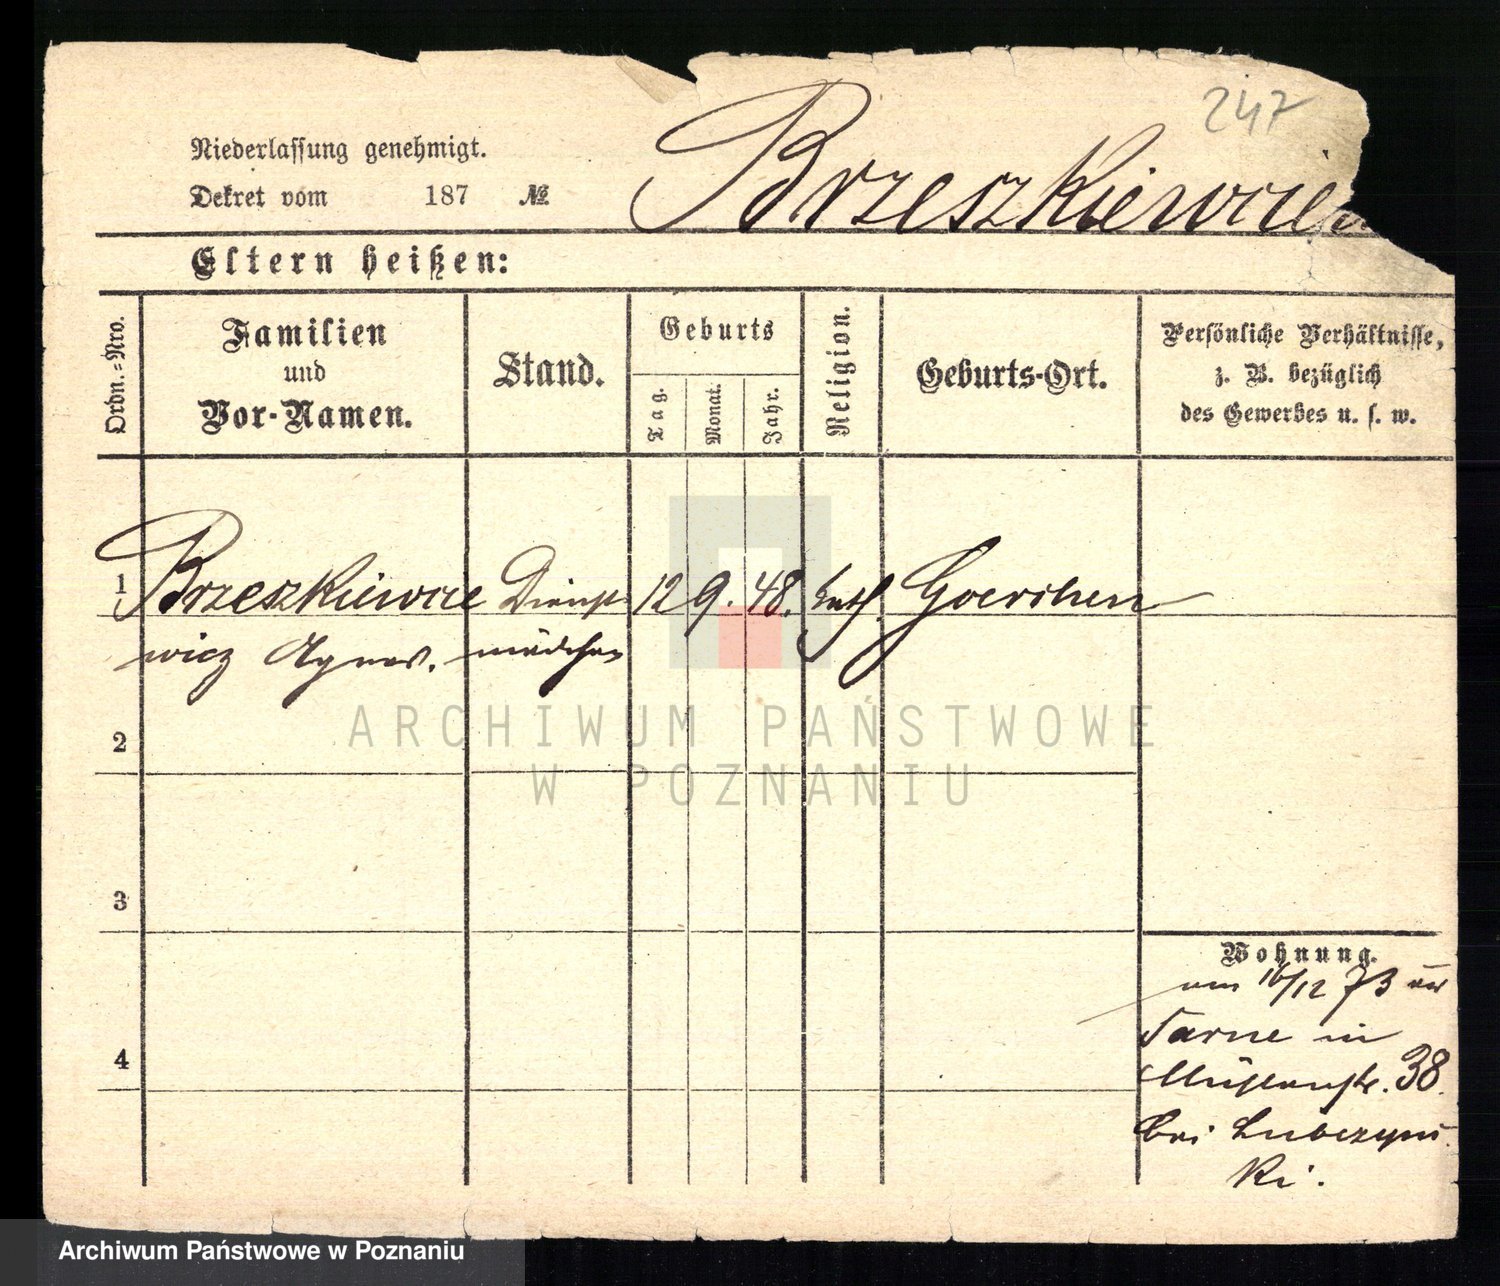 247
Niederlassung genehmigt.
Dekret vom 187 №
Brzeszkiewicz
Eltern heißen:
Ordn.-Nro.
Familien
und
Vor-Namen.
Stand.
Geburts
Tag.
Monat.
Jahr.
Religion.
Geburts-Ort.
Persönliche Verhältnisse,
z. B. bezüglich
des Gewerbes u. s. w.
1 Brzeszkiewic Dienst 12 9. 48. kath. Goerchen
wicz Agnes. mädchen
2
3
4
Wohnung.
am 16/12 73
Tarne in
Mühlenstr. 38.
bei Lubczyns
ki.
ARCHIWUM PAŃSTWOWE
W POZNANIU
Archiwum Państwowe w Poznaniu